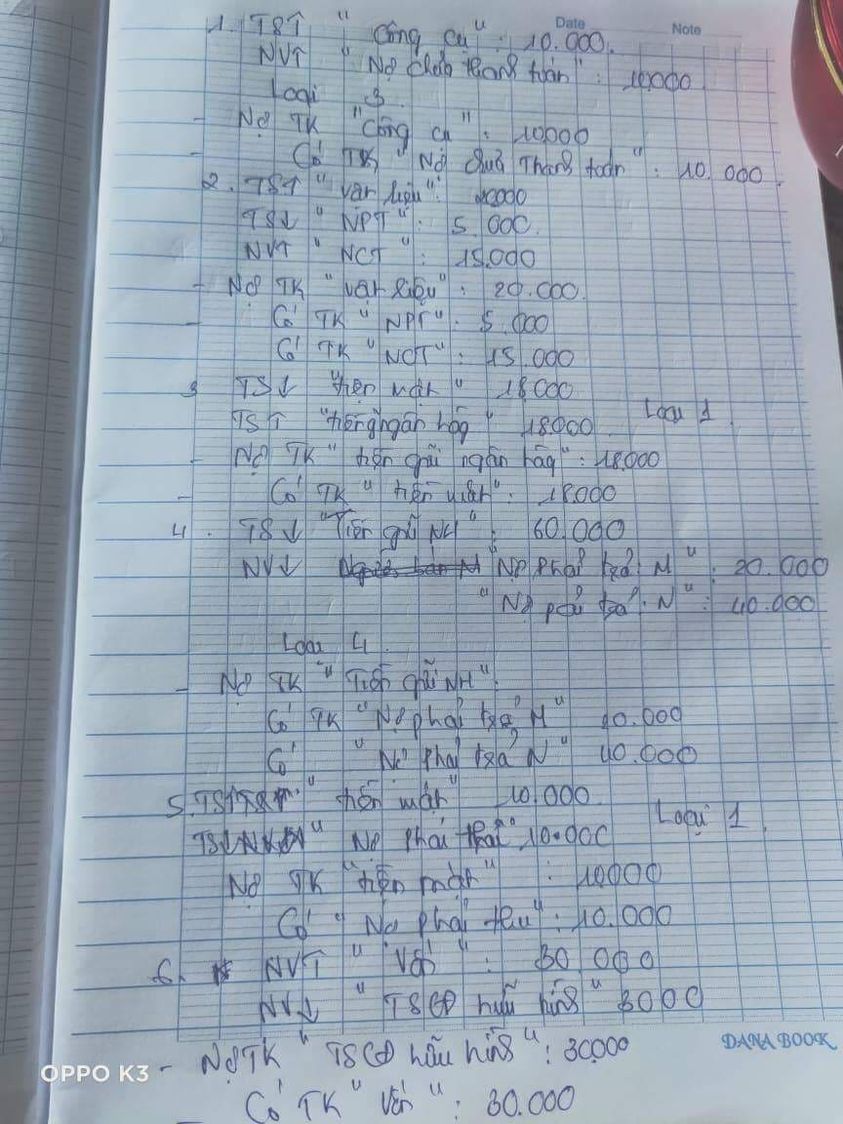 Date Note
1. TS↑ "Công cụ": 10.000.
NV↑ "Nợ chưa thanh toán": 10.000
Loại 3
- Nợ TK "Công cụ": 10000
- Có TK "Nợ chưa thanh toán": 10.000
2. TS↑ "vật liệu": 20000
TS↓ "NPT": 5.000.
NV↑ "NCT": 15.000
- Nợ TK "vật liệu": 20.000.
- Có TK "NPT": 5.000
Có TK "NCT": 15.000
3 TS↓ "tiền mặt" 18.000
TS↑ "tiền gửi ngân hàg" 18.000 Loại 1
- Nợ TK "tiền gửi ngân hàg": 18.000
- Có TK "tiền mặt": 18.000
4. TS↓ "Tiền gửi NH": 60.000
NV↓ "Nợ phải trả M": 20.000
"Nợ phải trả N": 40.000
Loại 4.
- Nợ TK "Tiền gửi NH":
Có TK "Nợ phải trả M" 20.000
Có "Nợ phải trả N" 40.000
5. TS↑ "tiền mặt" 10.000
TS↓ "Nợ phải thu" 10.000 Loại 1
Nợ TK "tiền mặt": 10000
Có "Nợ phải thu": 10.000
6. NV↑ "Vốn": 30.000
NV↓ "TSCĐ hữu hình" 3000
- Nợ TK "TSCĐ hữu hình": 30.000
DANA BOOK
Có TK "Vốn": 30.000
OPPO K3